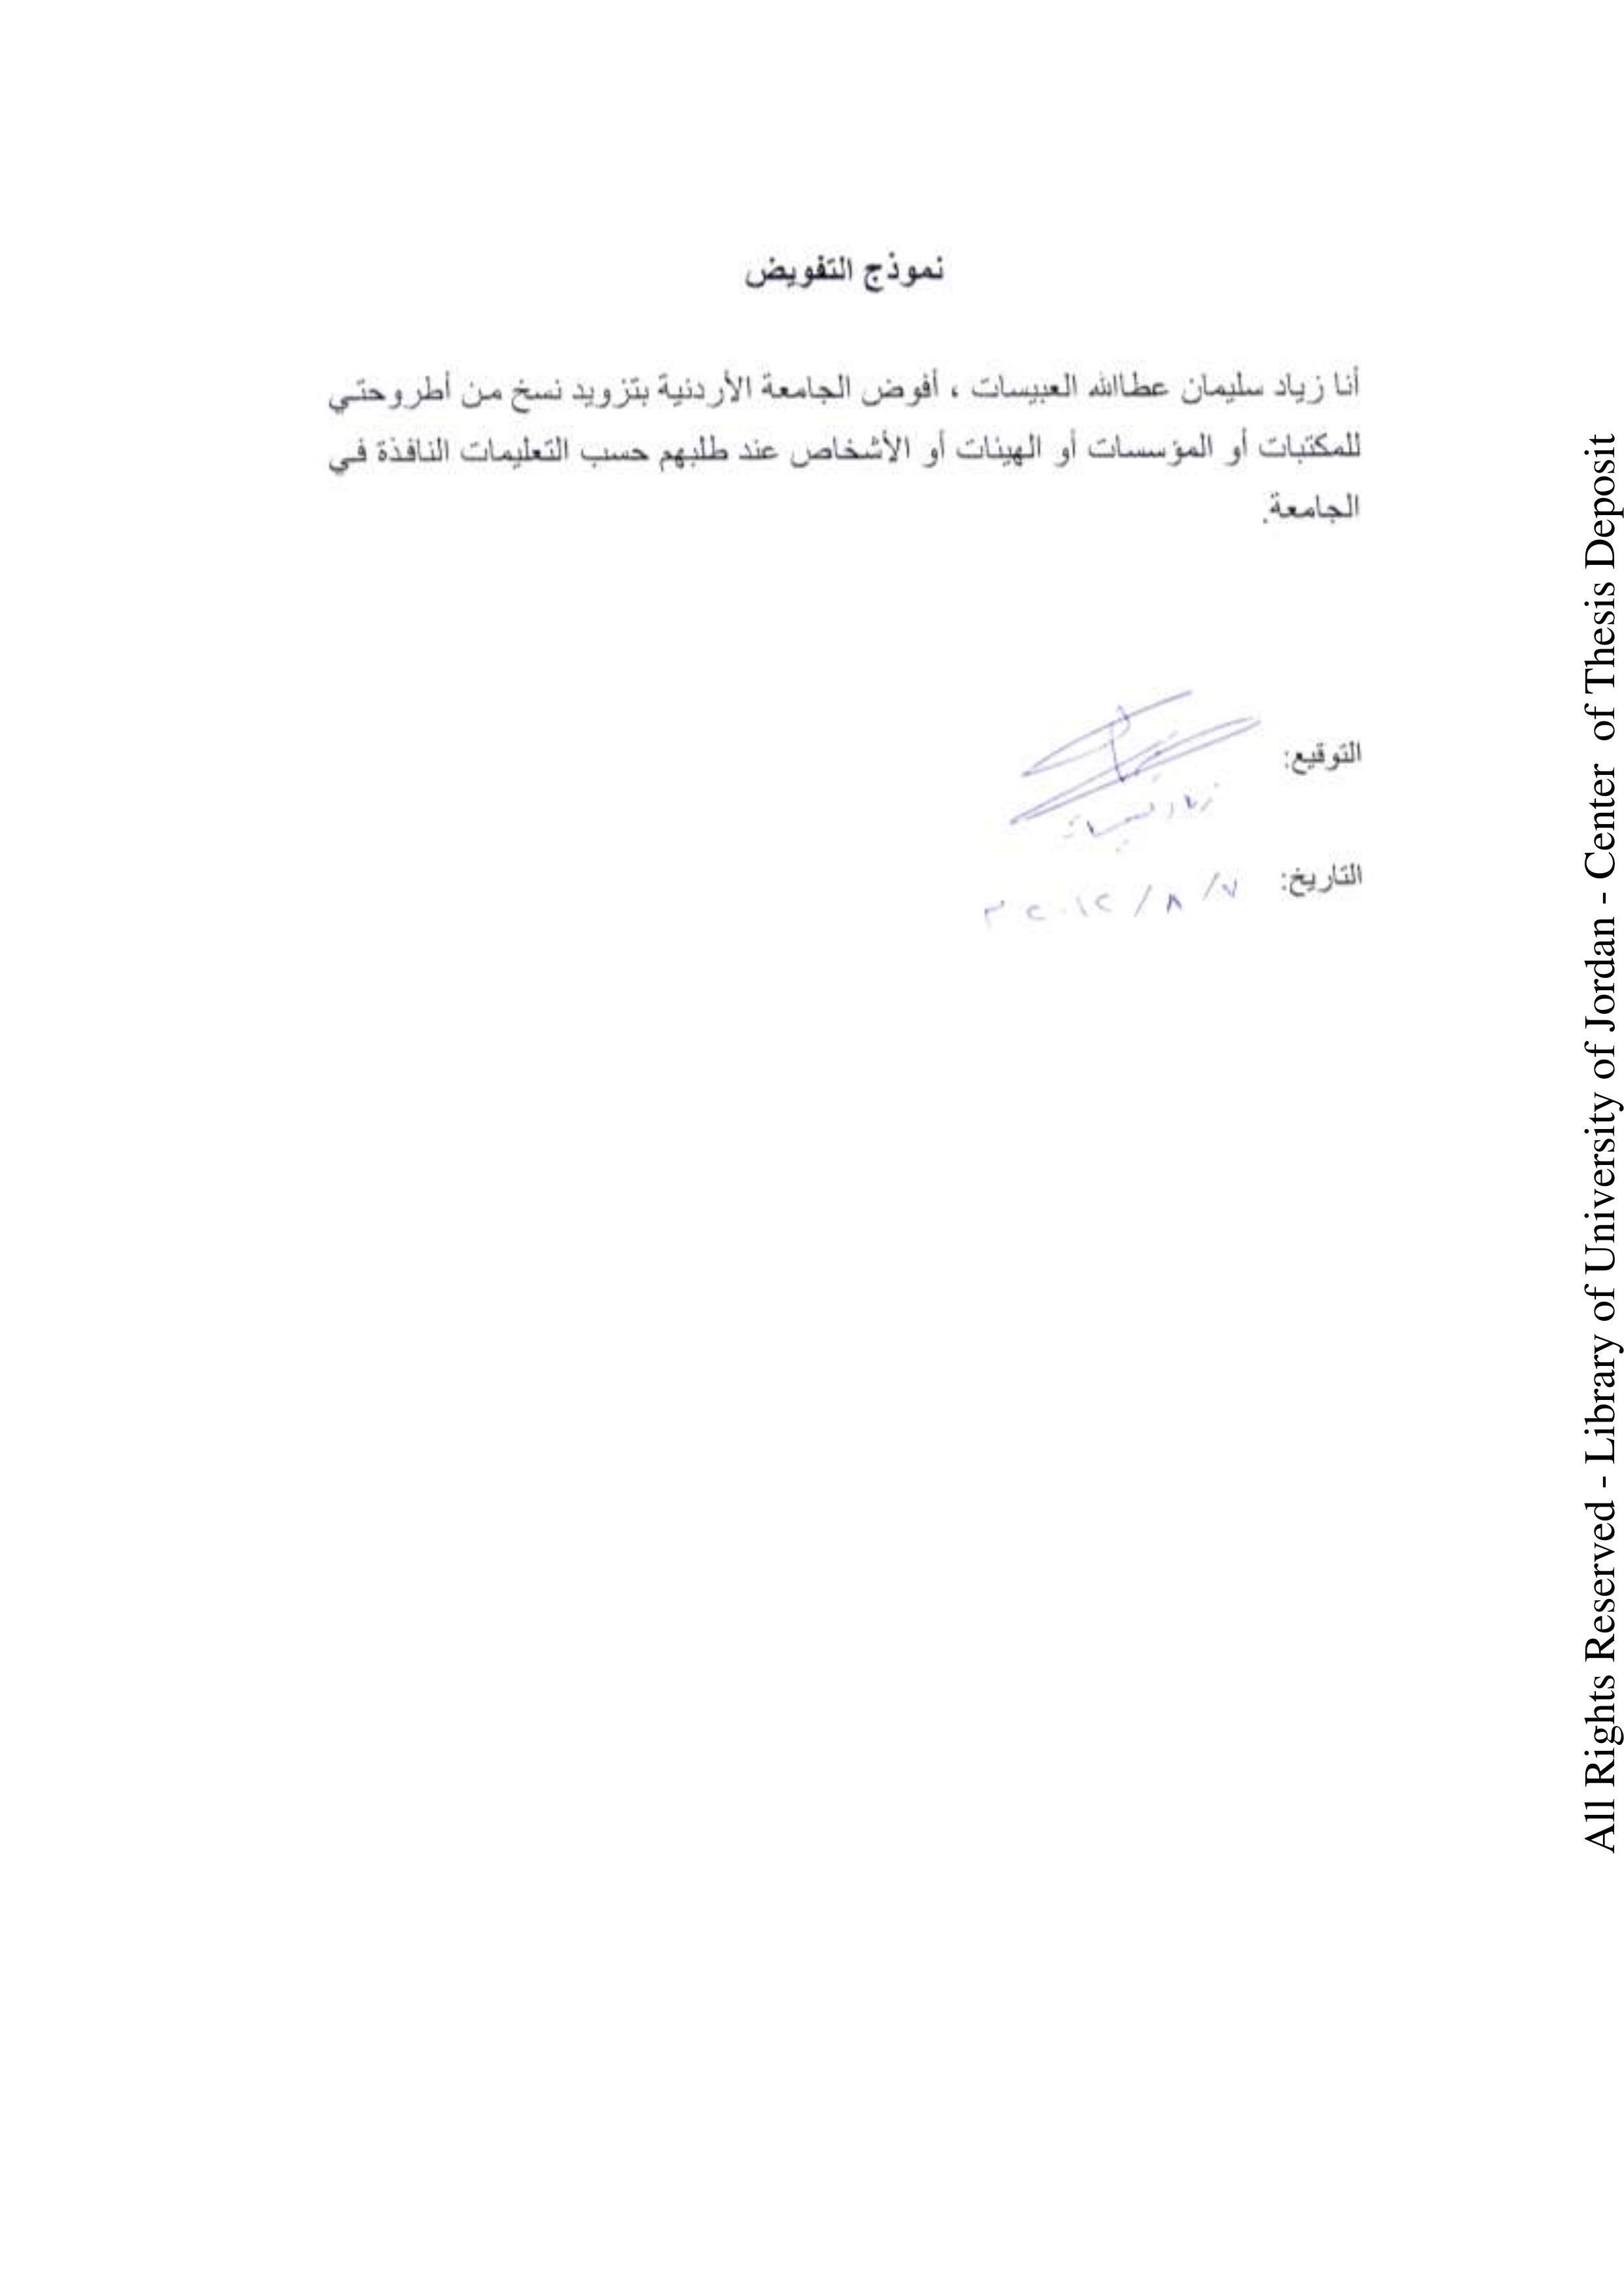 نموذج التفويض
أنا زياد سليمان عطاالله العبيسات ، أفوض الجامعة الأردنية بتزويد نسخ من أطروحتي
للمكتبات أو المؤسسات أو الهيئات أو الأشخاص عند طلبهم حسب التعليمات النافذة في
الجامعة.
التوقيع:
زياد العبيسات
التاريخ: ٧/ ٨ / ٢٠١٢ م
All Rights Reserved - Library of University of Jordan - Center of Thesis Deposit